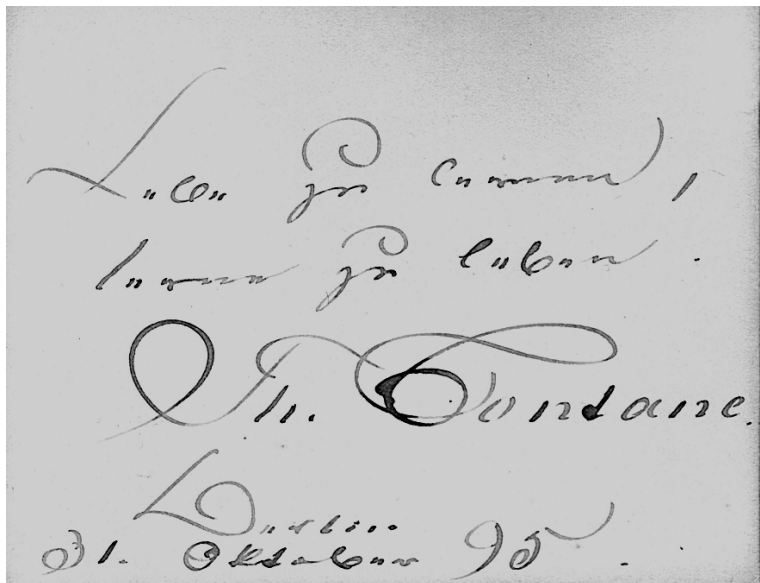 Lebe zu lernen,
lerne zu leben.
Th. Fontane.
Berlin
31. Oktober 95.